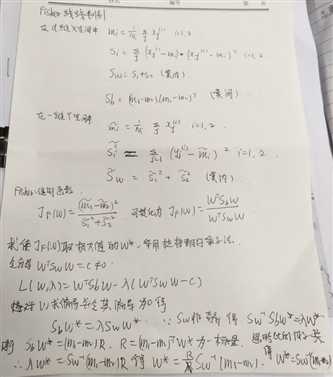 Fisher 线性判别
m_i = 1/N_i Σ x_j^(i) i=1,2
S_i = Σ (x_j^(i) - m_i)(x_j^(i) - m_i)^T i=1,2
S_w = S_1+S_2 (类内)
S_b = (m_1-m_2)(m_1-m_2)^T (类间)
在一维Y空间
m̃_i = 1/N_i Σ y_j^(i) i=1,2
S̃_i² = Σ (y_j^(i) - m̃_i)² i=1,2
S̃_w = S̃_1² + S̃_2² (类内)
Fisher 准则函数
J_F(W) = (m̃_1-m̃_2)² / (S̃_1²+S̃_2²) 可转化为 J_F(W) = W^T S_b W / W^T S_w W
求使 J_F(W) 取极大值的 W*, 采用拉格朗日乘子法.
令分母 W^T S_w W = C ≠ 0.
L(W,λ) = W^T S_b W - λ(W^T S_w W - C)
对W求偏导 令其偏导为0得
S_b W* = λ S_w W* ∵ S_w 非奇异 得 S_w^-1 S_b W* = λW*
S_b W* = (m_1-m_2)R. R = (m_1-m_2)^T W* 为一标量.
∴ λW* = S_w^-1 (m_1-m_2)R 得 W* = R/λ S_w^-1 (m_1-m_2). 得 W* = S_w^-1 (m_1-m_2)